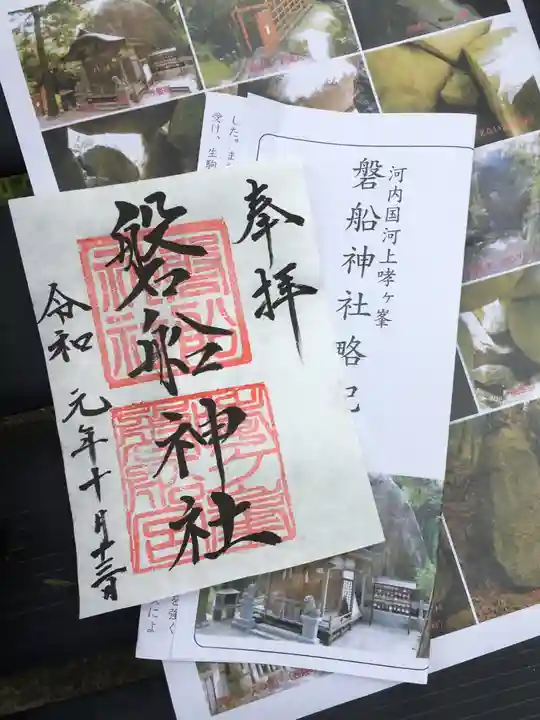 奉拝
磐船神社
令和元年十月十三日
河内国河上哮ヶ峯
磐船神社略記
した。ま
受け、生駒
を強く